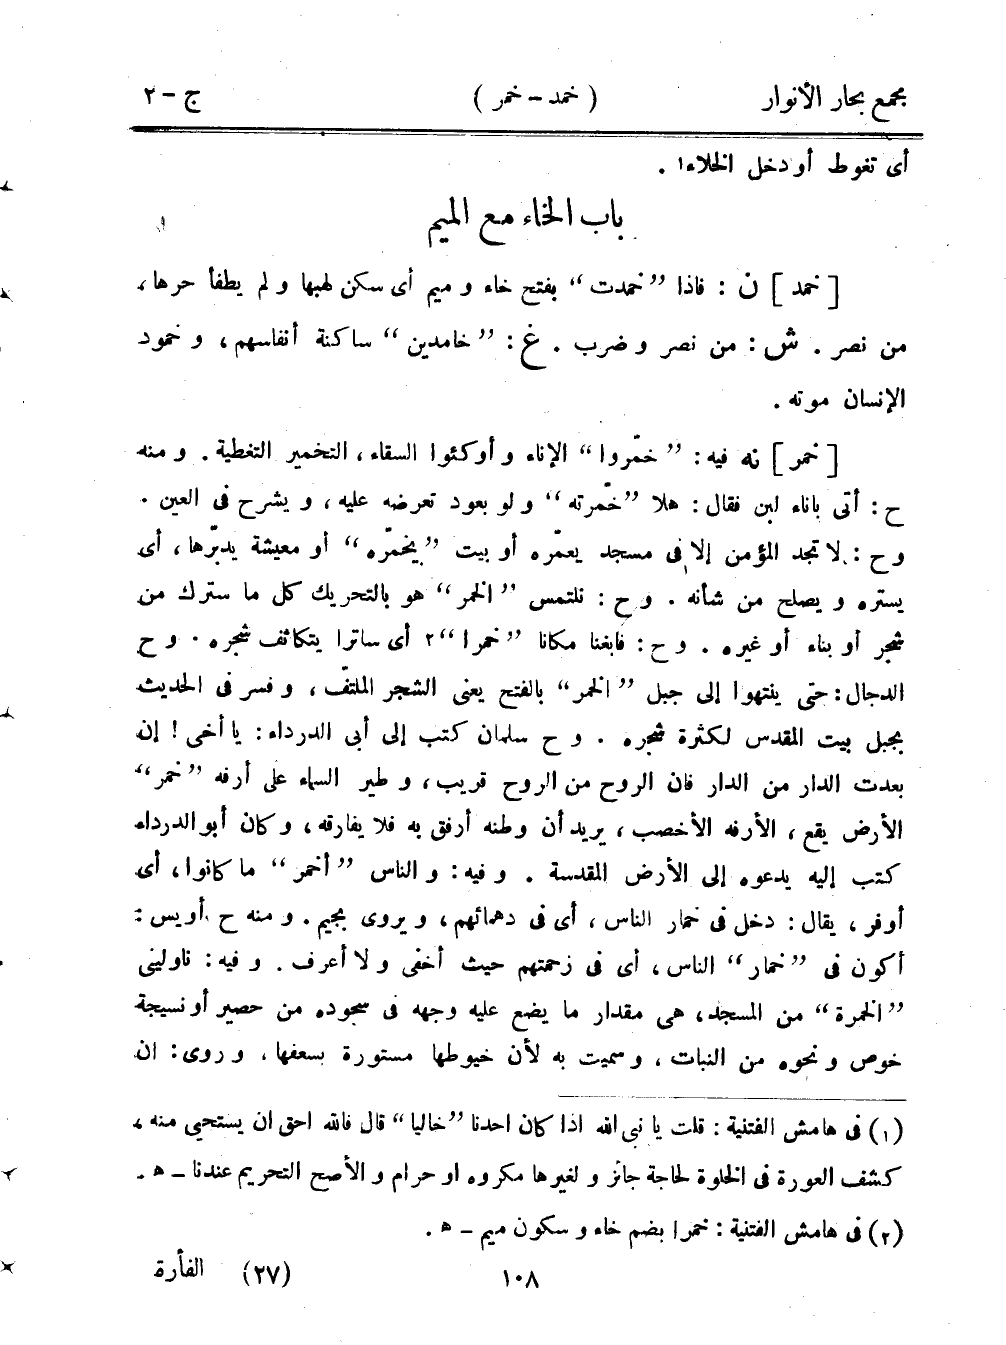 مجمع بحار الأنوار ( خمد – خمر ) ج – ٢
أى تغوط أو دخل الخلاء١ .
باب الخاء مع الميم
[ خمد ] ن : فاذا ”خمدت“ بفتح خاء و ميم أى سكن لهبها و لم يطفأ حرها،
من نصر . ش : من نصر و ضرب . غ : ”خامدين“ ساكنة أنفاسهم، و خمود
الإنسان موته .
[ خمر ] نه فيه: ”خمّروا“ الإناء و أوكئوا السقاء، التخمير التغطية . و منه
ح : أتى باناء لبن فقال: هلا ”خمّرته“ و لو بعود تعرضه عليه، و يشرح فى العين .
و ح : لا تجد المؤمن إلا فى مسجد يعمّره أو بيت ”يخمّره“ أو معيشة يدبّرها، أى
يستره و يصلح من شأنه . و ح : نلتمس ”الخمر“ هو بالتحريك كل ما سترك من
شجر أو بناء أو غيره . و ح : فابغنا مكانا ”خمرا“٢ أى ساترا يتكاثف شجره . و ح
الدجال: حتى ينتهوا إلى جبل ”الخمر“ بالفتح يعنى الشجر الملتفّ، و فسر فى الحديث
بجبل بيت المقدس لكثرة شجره . و ح سلمان كتب إلى أبى الدرداء: يا أخى! إن
بعدت الدار من الدار فان الروح من الروح قريب، و طير السماء على أرفه ”خمر“
الأرض يقع، الأرفه الأخصب، يريد أن وطنه أرفق به فلا يفارقه، و كان أبو الدرداء
كتب إليه يدعوه إلى الأرض المقدسة . و فيه: و الناس ”أخمر“ ما كانوا، أى
أوفر، يقال: دخل فى خمار الناس، أى فى دهمائهم، و يروى بجيم . و منه ح أويس :
أكون فى ”خمار“ الناس، أى فى زحمتهم حيث أخفى و لا أعرف . و فيه: ناولينى
”الخمرة“ من المسجد، هى مقدار ما يضع عليه وجهه فى سجوده من حصير أو نسيجة
خوص و نحوه من النبات، و سميت به لأن خيوطها مستورة بسعفها، و روى: ان
(١) فى هامش الفتنية : قلت يا نبى الله اذا كان احدنا ”خاليا“ قال فالله احق ان يستحيى منه،
كشف العورة فى الخلوة لحاجة جائز و لغيرها مكروه او حرام و الأصح التحريم عندنا – ه .
(٢) فى هامش الفتنية : خمرا بضم خاء و سكون ميم – ه .
١٠٨ (٢٧) الفأرة